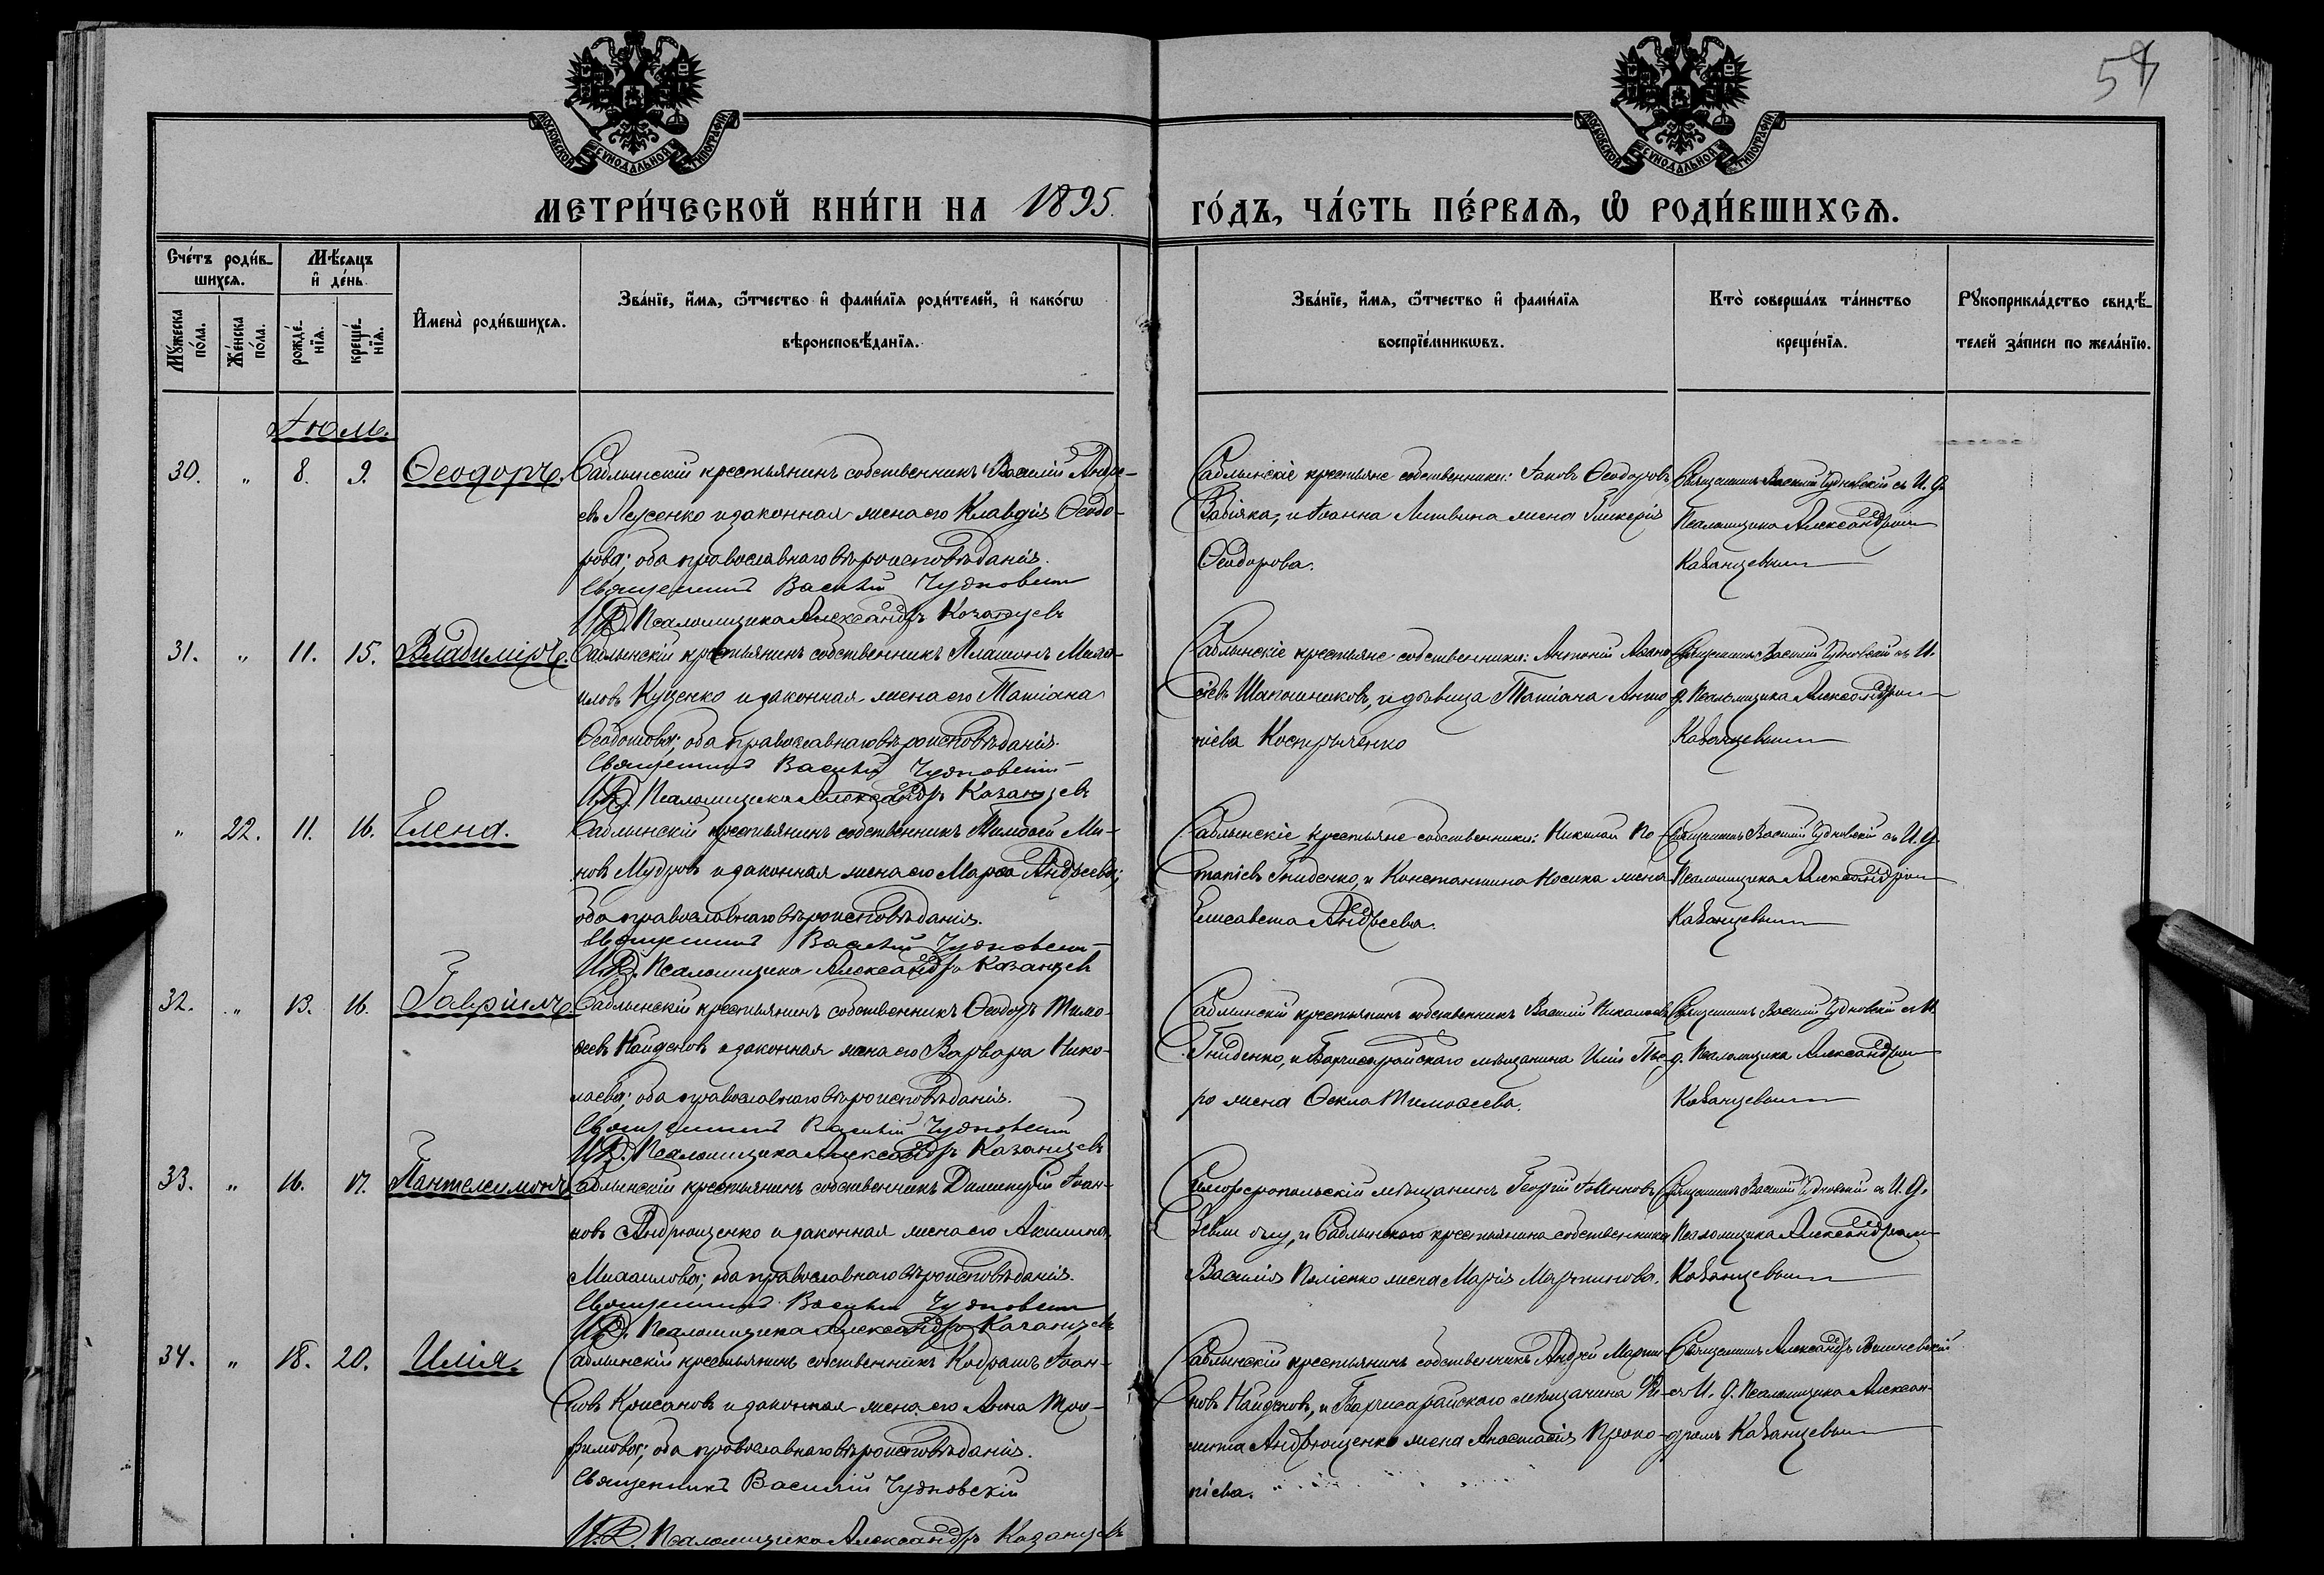 54
МОСКОВСКОЙ СУНОДАЛЬНОЙ ТИПОГРАФІИ
МОСКОВСКОЙ СУНОДАЛЬНОЙ ТИПОГРАФІИ
МЕТРИ́ЧЕСКОЙ КНИ́ГИ НА 1895. ГО́ДЪ, ЧА́СТЬ ПЕ́РВАѦ, Ѡ҆ РОДИ́ВШИХСѦ.
Сче́тъ роди́в-
шихся.
Мѣ́сяцъ
и҆ де́нь
Мꙋ́жеска
по́ла.
Же́нска
по́ла.
рожде́-
нїя.
креще́-
нїя.
И҆мена̀ роди́вшихся.
Зва́нїе, и҆́мя, ѻ҆́тчество и҆ фами́лїя роди́телей, и҆ како́гѡ
вѣроисповѣ́данїя.
Зва́нїе, и҆́мя, ѻ҆́тчество и҆ фами́лїя
воспрїе́мникѡвъ.
Кто̀ соверша́лъ та́инство
креще́нїя.
Рꙋкоприкла́дство свидѣ́-
телей за́писи по жела́нїю.
Іюль.
30. " 8. 9. Ѳеодоръ.
Саблынскій крестьянинъ собственникъ Василій Андре-
евъ Лысенко и законная жена его Клавдія Ѳеодо-
рова; оба православнаго вѣроисповѣданія.
Священникъ Василій Чудновскій
И. Д. Псаломщика Александръ Казанцевъ
Саблынскіе крестьяне собственники: Іаковъ Ѳеодоровъ
и Іоанна Литвина жена Гликерія
Ѳеодорова.
Священникъ Василій Чудновскій съ И. д.
Псаломщика Александромъ
Казанцевымъ
31. " 11. 15. Владиміръ.
Саблынскій крестьянинъ собственникъ Платонъ Миха-
иловъ Куценко и законная жена его Татіана
оба православнаго вѣроисповѣданія.
Священникъ Василій Чудновскій
И. Д. Псаломщика Александръ Казанцевъ
Саблынскіе крестьяне собственники: Антоній Аѳана-
сіевъ Шапошниковъ, и дѣвица Татіана Анто-
ніева
Священникъ Василій Чудновскій съ И.
д. Псаломщика Александромъ
Казанцевымъ
" 22. 11. 16. Елена.
Саблынскій крестьянинъ собственникъ Тимоѳей Ми-
новъ Мудровъ и законная жена его Марѳа Андреева;
оба православнаго вѣроисповѣданія.
Священникъ Василій Чудновскій
И. Д. Псаломщика Александръ Казанцевъ
Саблынскіе крестьяне собственники: Николай По-
тапіевъ Гниденко, и Константина Носика жена
Елисавета Андреева.
Священникъ Василій Чудновскій съ И. д.
Псаломщика Александромъ
Казанцевымъ
32. " 13. 16. Гавріилъ.
Саблынскій крестьянинъ собственникъ Ѳеодоръ Тимо-
ѳеевъ Найденовъ и законная жена его Варвара Нико-
лаева; оба православнаго вѣроисповѣданія.
Священникъ Василій Чудновскій
И. Д. Псаломщика Александръ Казанцевъ
Саблынскій крестьянинъ собственникъ Василій Николаевъ
Гниденко, и Бахчисарайскаго мѣщанина Иліи
жена Ѳекла Тимоѳеева.
Священникъ Василій Чудновскій съ И.
д. Псаломщика Александромъ
Казанцевымъ
33. " 16. 17. Пантелеимонъ
Саблынскій крестьянинъ собственникъ Димитрій Іоан-
новъ Андрющенко и законная жена его Акилина
Михаилова; оба православнаго вѣроисповѣданія.
Священникъ Василій Чудновскій
И. Д. Псаломщика Александръ Казанцевъ
Симферопольскій мѣщанинъ Георгій Іоанновъ
и Саблынскаго крестьянина собственника
Василія жена Марія Мартинова.
Священникъ Василій Чудновскій съ И. д.
Псаломщика Александромъ
Казанцевымъ
34. " 18. 20. Илія.
Саблынскій крестьянинъ собственникъ Кодратъ Іоан-
новъ и законная жена его Анна Тро-
фимова; оба православнаго вѣроисповѣданія.
Священникъ Василій Чудновскій
И. Д. Псаломщика Александръ Казанцевъ
Саблынскій крестьянинъ собственникъ Андрей Марти-
новъ Найденовъ, и Бахчисарайскаго мѣщанина Фи-
липпа Андрющенко жена Анастасія Проко-
піева.
Священникъ Александръ Вишневскій
съ И. д. Псаломщика Алексан-
дромъ Казанцевымъ